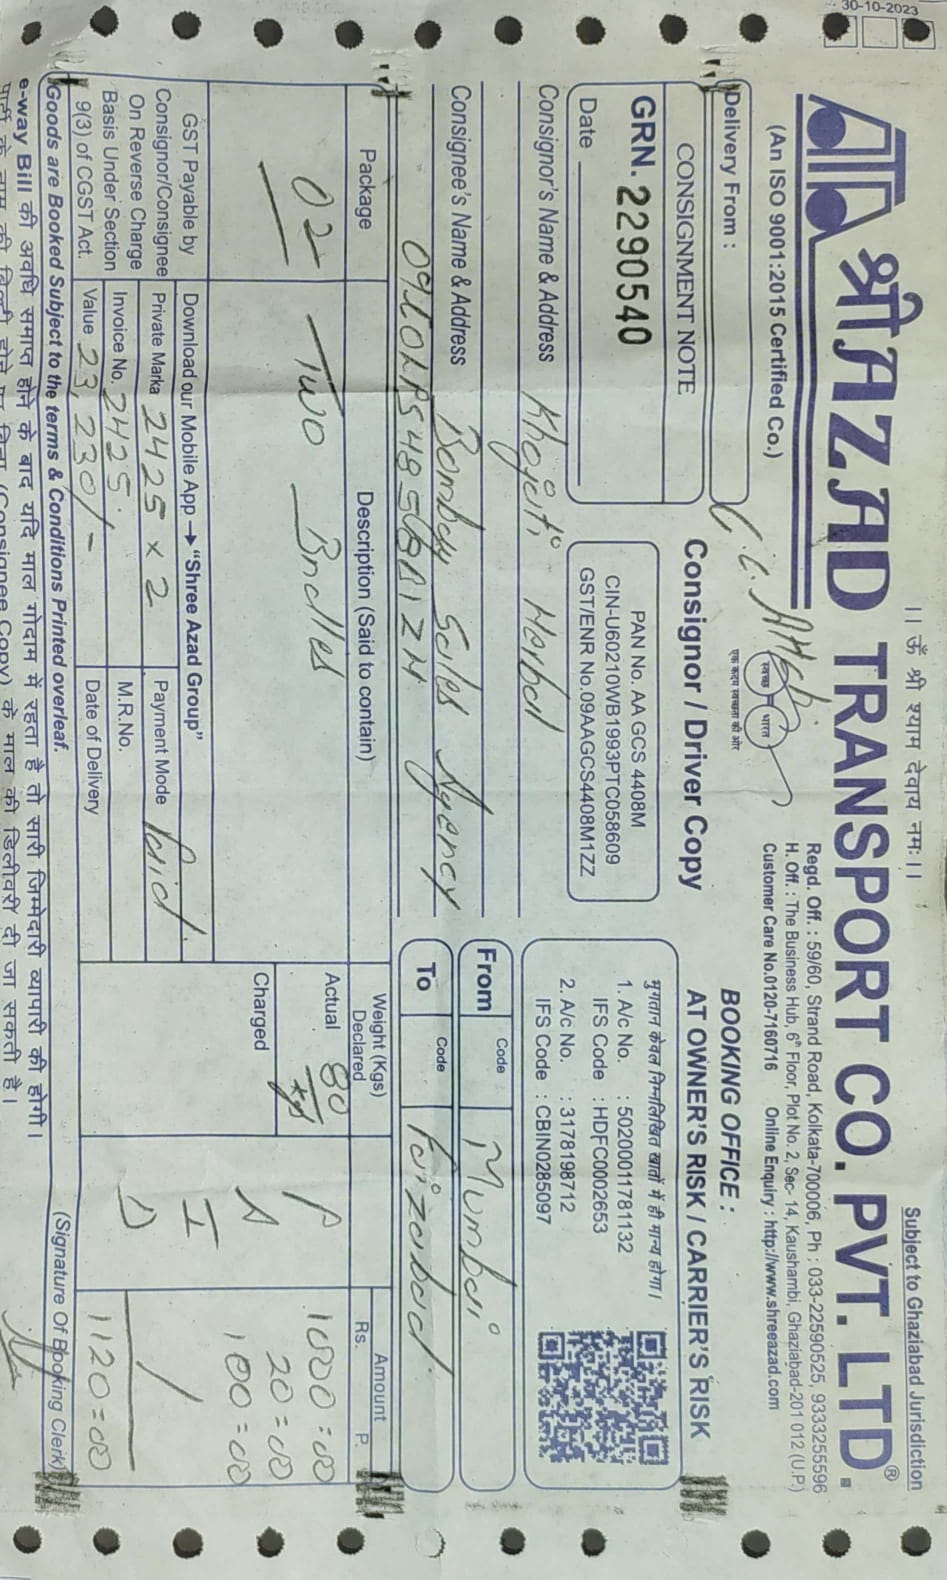 30-10-2023
।। ऊँ श्री श्याम देवाय नमः।।
Subject to Ghaziabad Jurisdiction
श्री AZAD TRANSPORT CO. PVT. LTD.®
(An ISO 9001:2015 Certified Co.)
Regd. Off. : 59/60, Strand Road, Kolkata-700006, Ph : 033-22590525, 9333255596
H. Off. : The Business Hub, 6th Floor, Plot No. 2, Sec- 14, Kaushambi, Ghaziabad-201 012 (U.P.)
Customer Care No.0120-7160716 Online Enquiry : http://www.shreeazad.com
स्वच्छ भारत
एक कदम स्वच्छता की ओर
Delivery From :
BOOKING OFFICE :
CONSIGNMENT NOTE
Consignor / Driver Copy
AT OWNER'S RISK / CARRIER'S RISK
GRN. 2290540
Date
PAN No. AA GCS 4408M
CIN-U60210WB1993PTC058609
GST/ENR No.09AAGCS4408M1ZZ
भुगतान केवल निम्नलिखित खातों में ही मान्य होगा।
1. A/c No. : 50200011781132
IFS Code : HDFC0002653
2. A/c No. : 3178198712
IFS Code : CBIN0285097
Consignor's Name & Address Khojati Herbal
From Code Mumbai
Consignee's Name & Address Bombay Sales Agency
To Code Faizabad.
Package
Description (Said to contain)
Weight (Kgs)
Declared
Amount
Rs. P.
02
Two Bndles
Actual 80 kg
Charged
P 1000=00
A 20=00
I 100=00
D
1120=00
GST Payable by
Consignor/Consignee
On Reverse Charge
Basis Under Section
9(3) of CGST Act.
Download our Mobile App → "Shree Azad Group"
Private Marka 2425 x 2
Payment Mode Paid.
Invoice No. 2425
M.R.No.
Value 23,230/-
Date of Delivery
Goods are Booked Subject to the terms & Conditions Printed overleaf.
(Signature Of Booking Clerk)
e-way Bill की अवधि समाप्त होने के बाद यदि माल गोदाम में रहता है तो सारी जिम्मेदारी व्यापारी की होगी।
पार्टी के नाम की बिल्टी होने पर बिना (Consignee Copy) के माल की डिलीवरी दी जा सकती है।